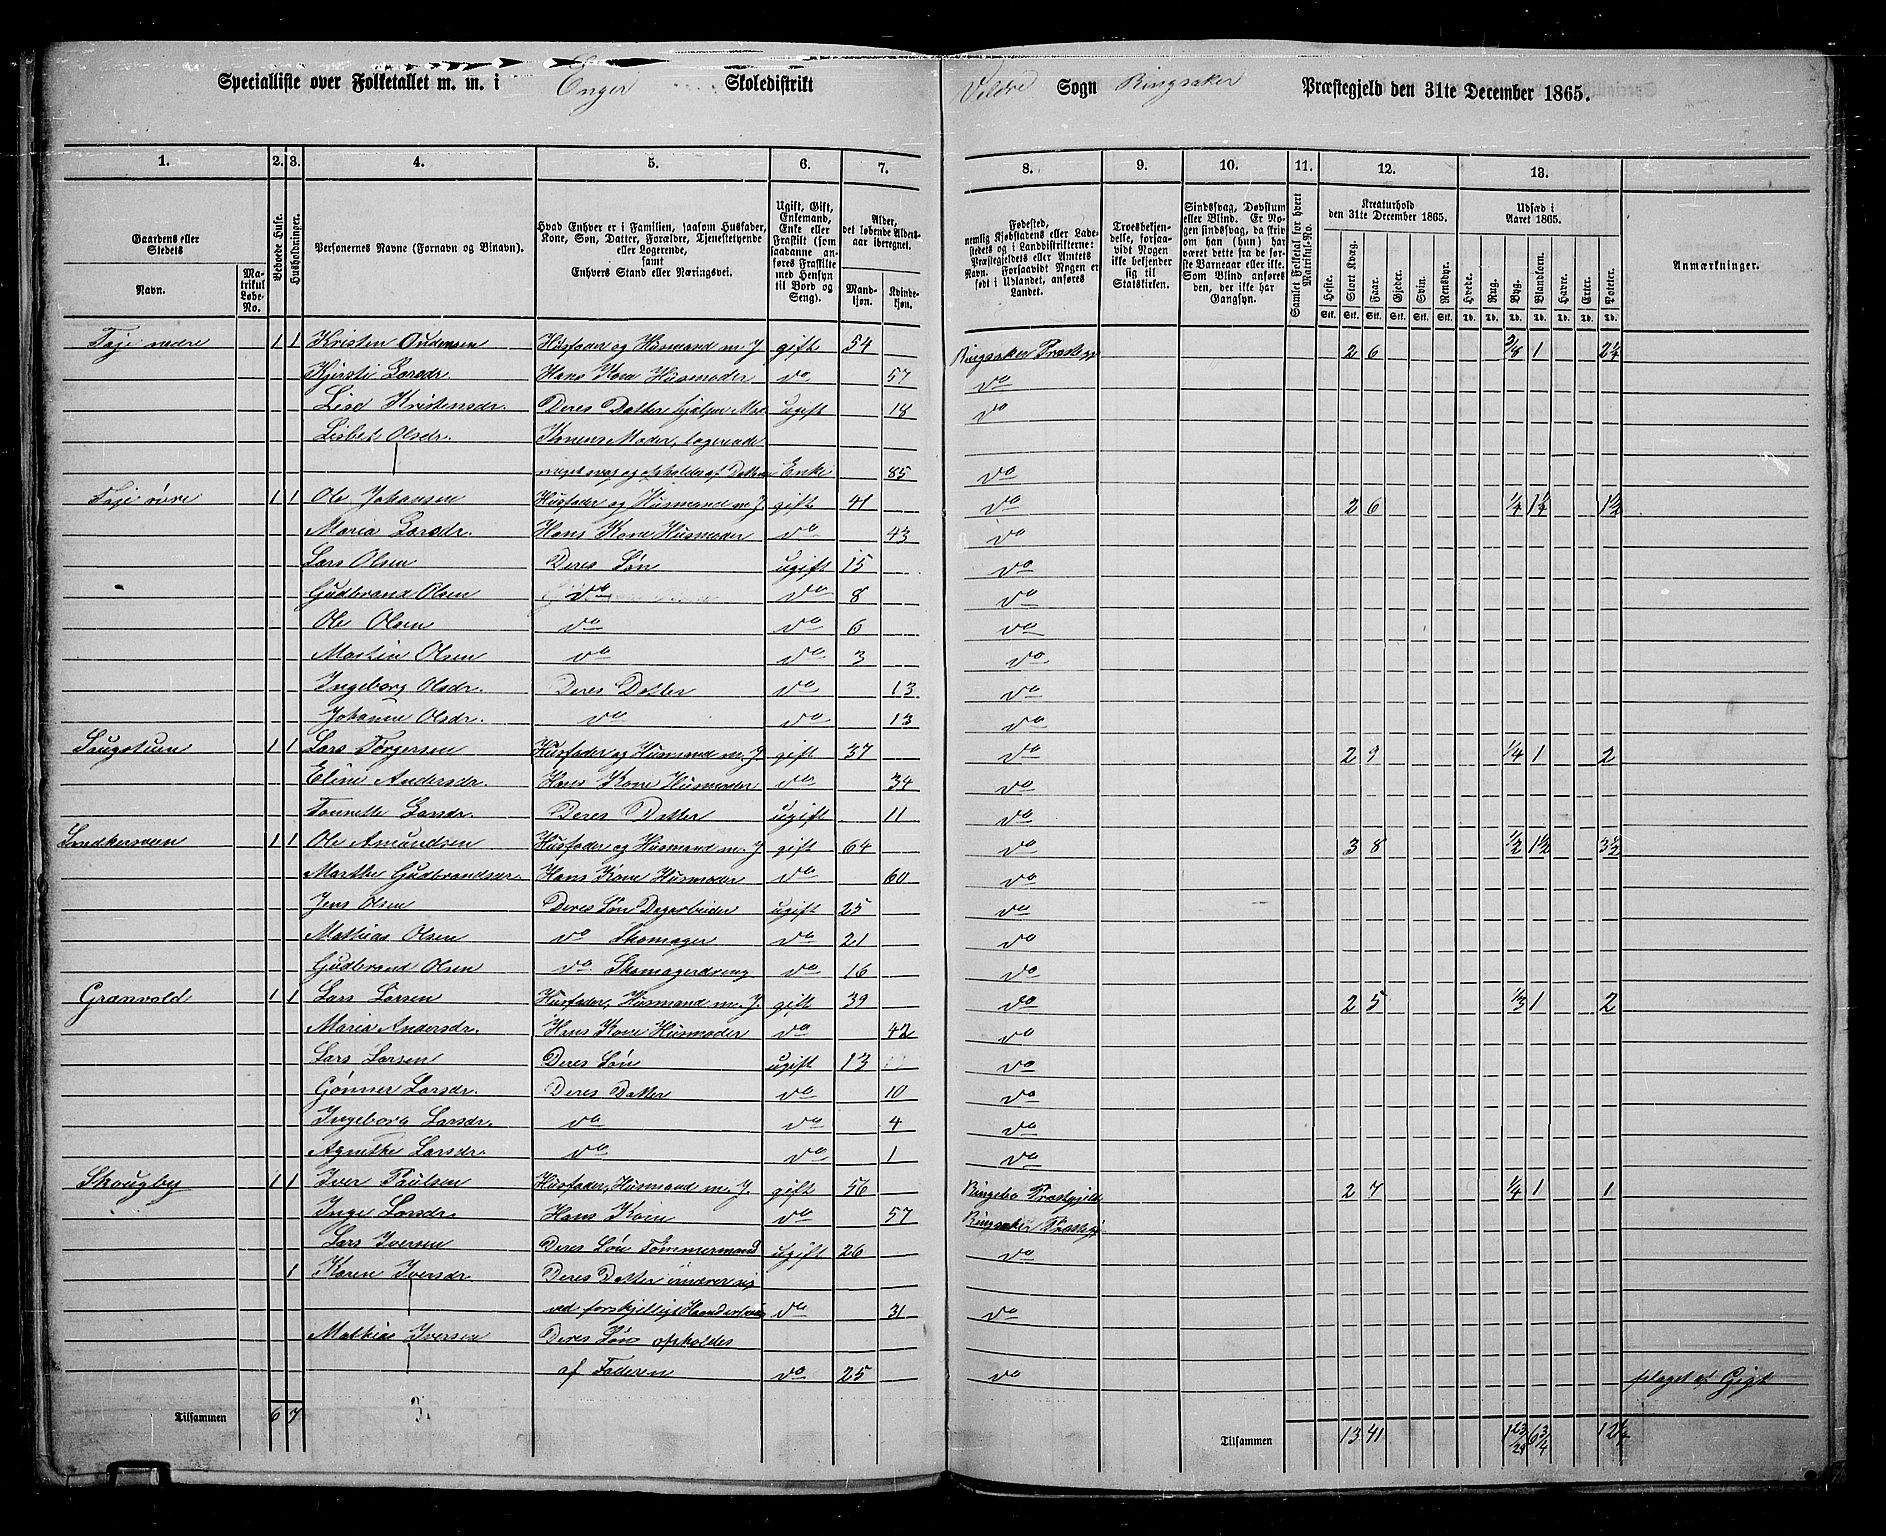 Specialliste over Folketallet m. m. i Enger Skoledistrikt Veldre Sogn Ringsaker Præstegjeld den 31te December 1865.
1. 2. 3. 4. 5. 6. 7. 8. 9. 10. 11. 12. 13.
Gaardens eller Stedets Navn. Matrikul Løbe-No.
Beboede Huse.
Husholdninger.
Personernes Navne (Fornavn og Binavn).
Hvad Enhver er i Familien, saasom Husfader, Kone, Søn, Datter, Forældre, Tjenestetyende eller Logerende, samt Enhvers Stand eller Næringsvei.
Ugift, Gift, Enkemand, Enke eller Fraskilt (som saadanne anføres Fraskilte med Hensyn til Bord og Seng).
Alder, det løbende Aldersaar iberegnet. Mandkjøn. Kvindekjøn.
Fødested, nemlig Kjøbstadens eller Ladestedets og i Landdistrikterne: Præstegjeldets eller Amtets Navn. Forsaavidt Nogen er født i Udlandet, anføres Landet.
Troesbekjendelse, forsaavidt Nogen ikke bekjender sig til Statskirken.
Sindssvag, Døvstum eller Blind. Er Nogen sindssvag, da skriv om han (hun) har været dette fra de første Barneaar eller ikke. Som Blind anføres den, der ikke har Gangsyn.
Samlet Folketal for hvert Matrikul-No.
Kreaturhold den 31te December 1865. Heste. Stort Kvæg. Faar. Gjeder. Svin. Rensdyr.
Udsæd i Aaret 1865. Hvede. Rug. Byg. Blandkorn. Havre. Erter. Poteter.
Anmærkninger.
Stk. Stk. Stk. Stk. Stk. Stk. Td. Td. Td. Td. Td. Td. Td.
Taje nedre 1 1 Kristen Oudensen Husfader og Husmand m. J gift 54 Ringsaker Præstegj 2 6 1
Kjersti Larsdr. Hans Kone Husmoder do 57 do
Lise Kristensdr. Deres Datter hjelper Mo ugift 18 do
Lisbet Olsdr. Konens Moder, logerende
Enke 85 do
Taje øvre 1 1 Ole Johansen Husfader og Husmand m J. gift 41 do 2 6 1/4 1 1/4 1 1/2
Maria Larsdr. Hans Kone Husmoder do 43 do
Lars Olsen Deres Søn ugift 15 do
Gudbrand Olsen do do 8 do
Ole Olsen do do 6 do
Martin Olsen do do 3 do
Ingeborg Olsdr. Deres Datter do 13 do
Johanne Olsdr. do do 13 do
1 1 Lars Torgersen Husfader og Husmand m. J. gift 37 do 2 9 1/4 1 2
Eline Andersdr. Hans Kone Husmoder do 34 do
Tonnette Larsdr. Deres Datter ugift 11 do
Snedkersveen 1 1 Ole Amundsen Husfader og Husmand m. J gift 64 do 3 8 1/2 1 1/2 3 1/2
Marthe Gudbrandsdr. Hans Kone Husmoder do 60 do
Jens Olsen Deres Søn Dagarbeider ugift 25 do
Mathias Olsen do Skomager do 21 do
Gudbrand Olsen do Skomagerdreng do 16 do
Granvold 1 1 Lars Larsen Husfader, Husmand m. J. gift 39 do 2 5 1/3 1 2
Maria Andersdr. Hans Kone Husmoder do 42 do
Lars Larsen Deres Søn ugift 13 do
Gønner Larsdr. Deres Datter do 10 do
Ingeborg Larsdr. do do 4 do
Agnethe Larsdr. do do 1 do
Skougby 1 1 Iver Paulsen Husfader, Husmand m. J. gift 56 Ringebo Præstgjeld 2 7 1/4 1 1
Inge Larsdr. Hans Kone do 57 Ringsaker Præstegj
Lars Iversen Deres Søn Tømmermand ugift 26 do
1 Karen Iversdr Deres Datter ernærer sig
ved forskjelligt Haandarbeide do 31 do
Mathias Iversen Deres Søn opholdes
af Faderen do 25 do plaget af Gigt
Tilsammen 6 7 3. Tilsammen 13 41 6 3/4